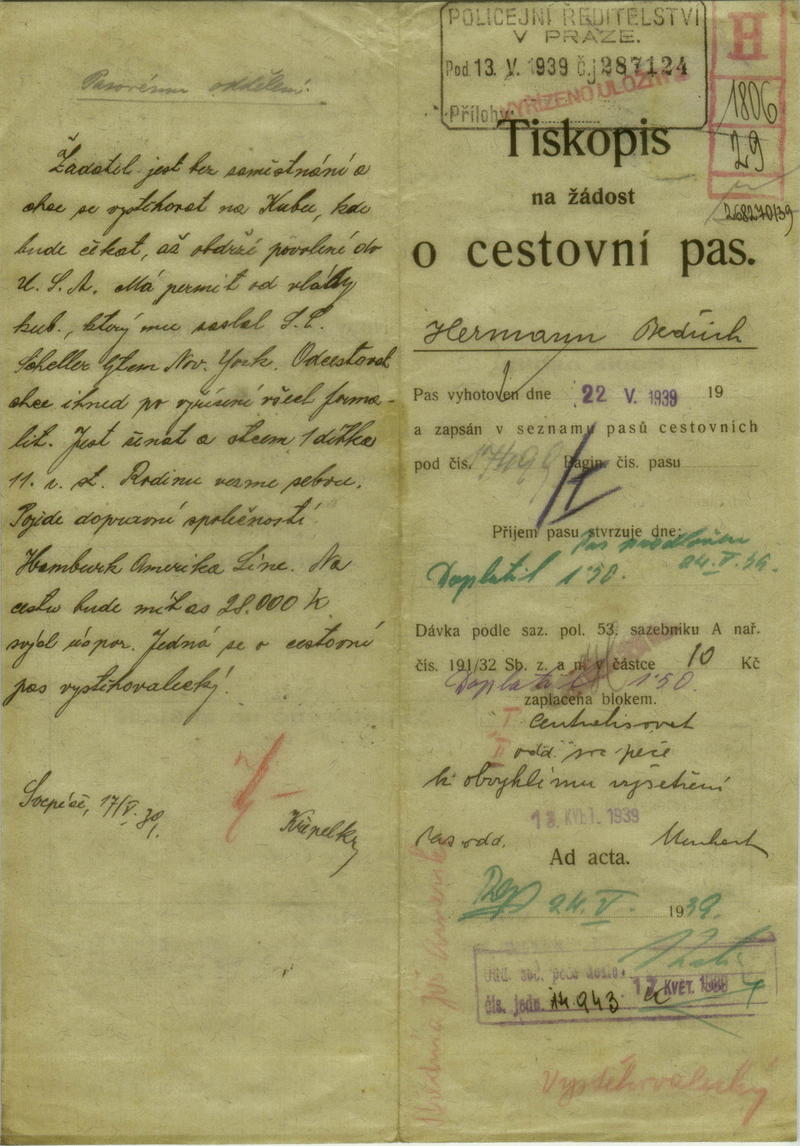 Pasovému oddělení.
Žadatel jest bez zaměstnání a
chce se vystěhovat na Kubu, kde
bude čekat, až obdrží povolení do
U.S.A. Má permit od vlády
kub., který mu zaslal
Scheller New. York. Odcestovat
chce ihned po vyřízení všech forma-
lit. Jest ženat a otcem 1 dítka
11. r. st. Rodinu vezme sebou.
Pojede dopravní společností
Hamburk Amerika Line. Na
cestu bude mít as 28.000 K
svých úspor. Jedná se o cestovní
pas vystěhovalecký.
17/V. 39.
Křepelka
POLICEJNÍ ŘEDITELSTVÍ
V PRAZE.
Pod 13. V. 1939 č.j. 287124
Přílohy:
VYŘÍZENO ULOŽITI
H
1806
29
268270/39
Tiskopis
na žádost
o cestovní pas.
Hermann Bedřich
Pas vyhotoven dne 22 V. 1939 19
a zapsán v seznamu pasů cestovních
pod čís. Pagin. čís. pasu
Příjem pasu stvrzuje dne:
Doplatil 1'50. 24.V.39.
Dávka podle saz. pol. 53. sazebníku A nař.
čís. 191/32 Sb. z. a n. v částce 10 Kč
Doplatil 1'50.
zaplacena blokem.
I centralisovat
II odd. soc péče
k obvyklému vyšetření
13 KVĚT. 1939
Pas odd.
Ad acta.
24.V. 1939.
Odd. soč. péče došlo: 17 KVĚT. 1939
čís. jedn. 14943
Vystěhovalecký